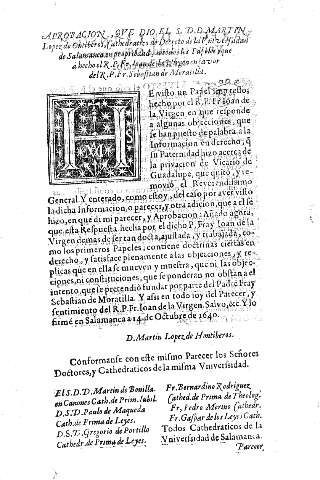 APROBACION, QUE DIO EL S. D. D. MARTIN
Lopez de Hontiberos, Cathedratico de Decreto de la Vniversidad
de Salamanca en propriedad, a el Papel que
a hecho el R. P. Fr. Joan de la Virgen en favor
del R. P. Fr. Sebastian de Moratilla.
HE visto un Papel impresso,
hecho por el R. P. Fr. Joan de
la Virgen en que responde
a algunas objecciones, que
se han puesto de palabra a la
Informacion en derecho, q̃
su Paternidad hizo acerca de
la privacion de Vicario de
Guadalupe, que quitò, y re-
moviò el Reverendissimo
General. Y enterado, como estoy, del caso por aver visto
la dicha Informacion, o parecer, y otra adicion, que a el se
hizo, en que di mi parecer, y Aprobacion: Añado agora,
que esta Respuesta hecha por el dicho P. Fray Joan de la
Virgen demas de ser tan docta, ajustada, y trabajada, co-
mo los primeros Papeles; contiene doctrinas ciertas en
derecho, y satisface plenamente a las objecciones, y re-
plicas que en ella se mueven y muestra, que ni las objec-
ciones, ni constituciones, que se ponderan no obstan a el
intento, que se pretendiò fundar por parte del Padre Fray
Sebastian de Moratilla. Y assi en todo soy del parecer, y
sentimiento del R. P. Fr. Joan de la Virgen. Salvo, &c. Y lo
firmè en Salamanca a 14. de Octubre de 1640.
D. Martin Lopez de Hontiberos.
Conformanse con este mismo Parecer los Señores
Doctores, y Cathedraticos de la misma Vniversidad.
El S. D. D. Martin de Bonilla.
en Canones Cath. de Prim. Iubil.
D. S. D. Paulo de Maqueda
Cath. de Prima de Leyes.
D. S. D. Gregorio de Portillo
Cathedr. de Prima de Leyes.
Fr. Bernardino Rodriguez
Cathed. de Prima de Theolog.
Fr. Pedro Merino Cathedr.
Fr. Gaspar de los Reyes Cath.
Todos Cathedraticos de la
Vniversidad de Salamanca.
Parecer